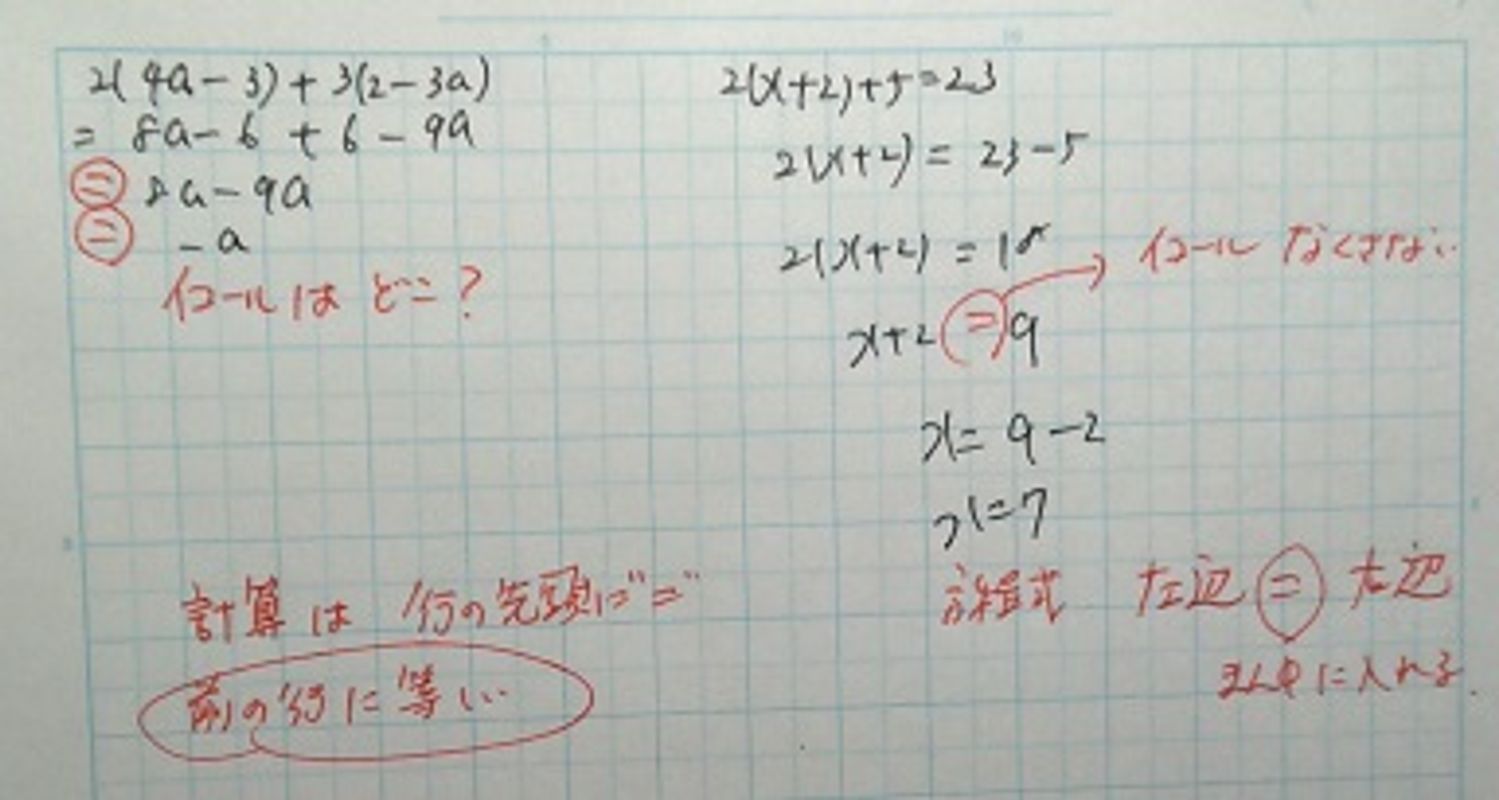 2(4a-3)+3(2-3a)
= 8a-6+6-9a
= 8a-9a
= -a
イコールは どこ?
計算は 行の先頭に"="
前の行に等しい
2(x+2)+5=23
2(x+2)=23-5
2(x+2)=18
イコール なくさない
x+2=9
x=9-2
x=7
方程式 左辺=右辺
まん中に入れる.